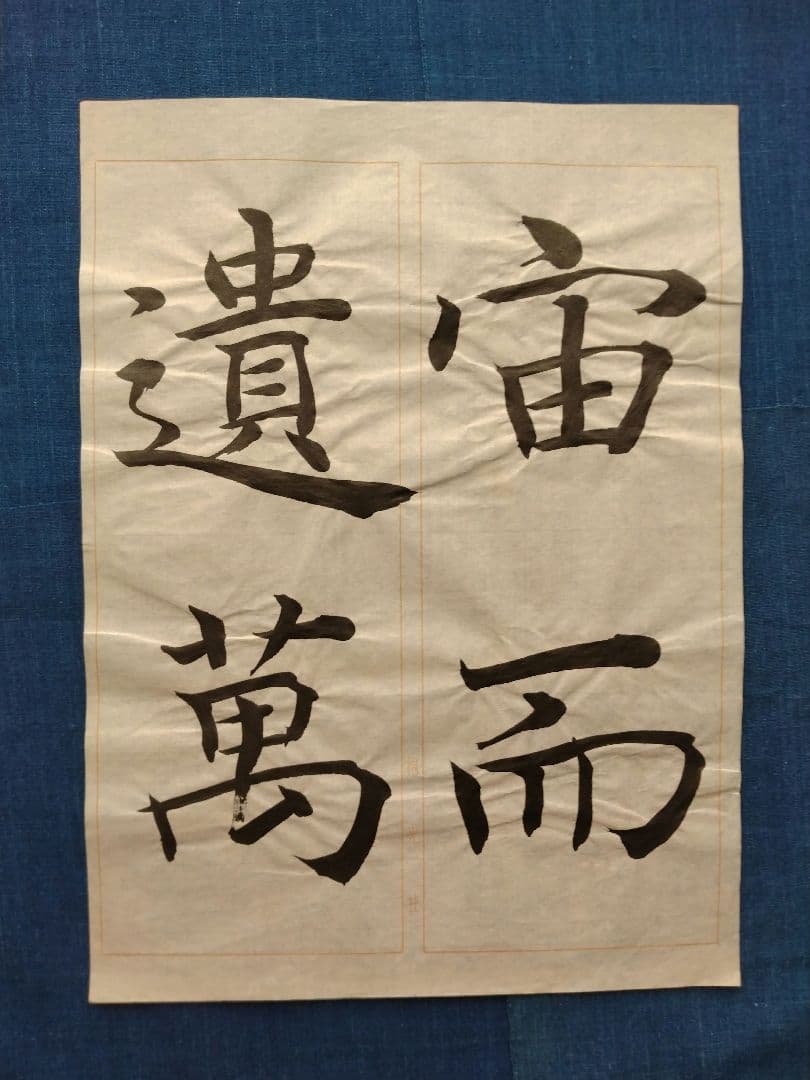 宙而
遺萬